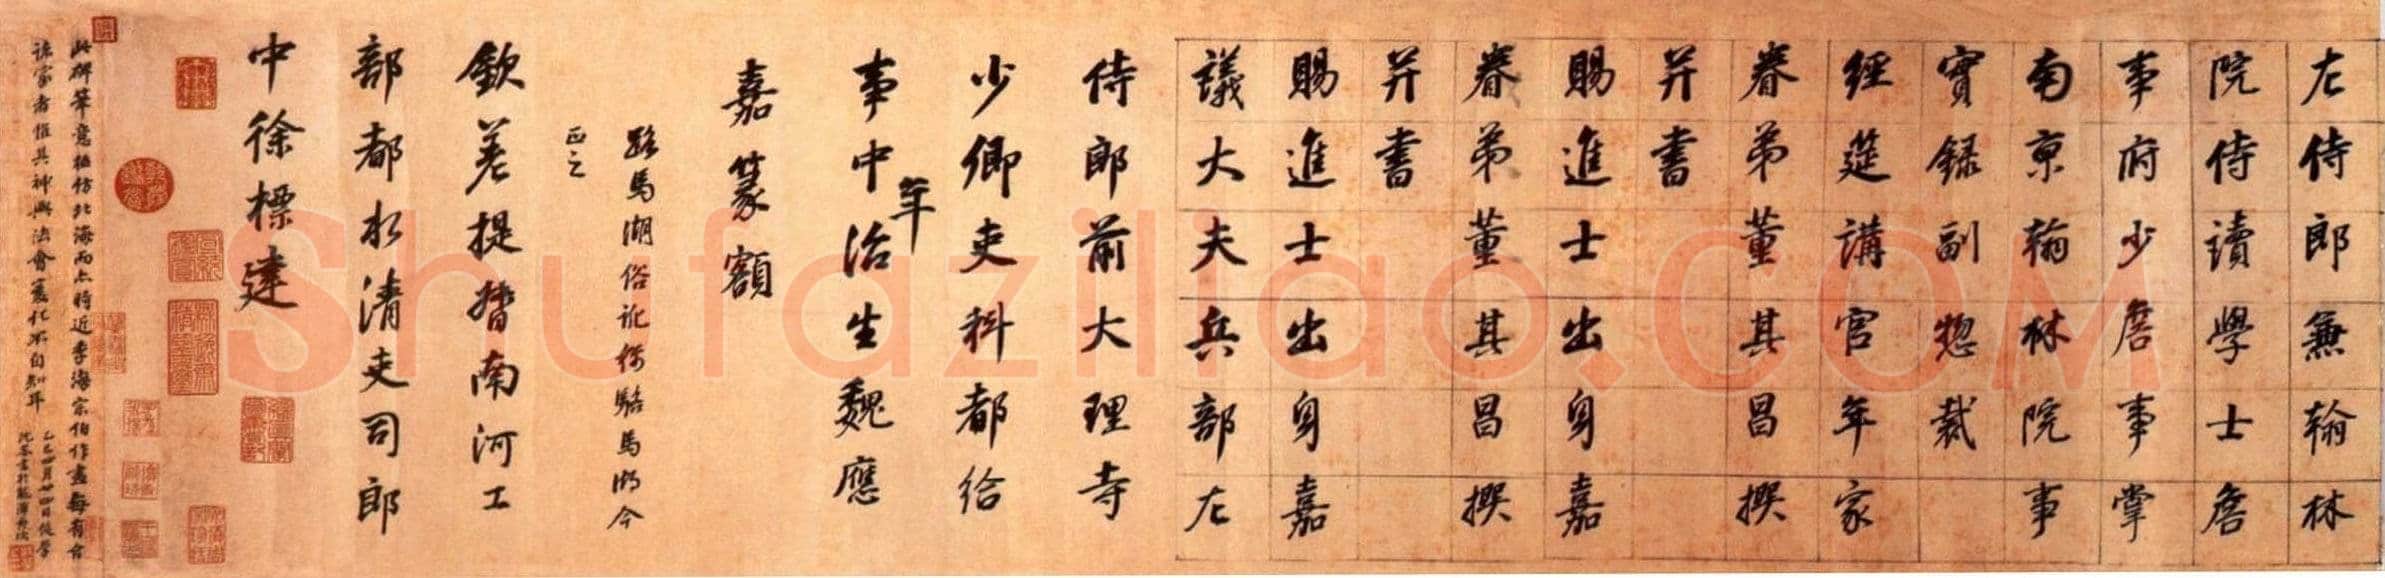 左侍郎兼翰林
院侍讀學士詹
事府少詹事掌
南京翰林院事
實錄副惣裁
經筵講官年家
眷弟董其昌撰
并書
賜進士出身嘉
眷弟董其昌撰
并書
賜進士出身嘉
議大夫兵部左
侍郎前大理寺
少卿吏科都給
年
事中治生魏應
嘉篆額
駱馬湖俗訛為駱馬湖今
正之
欽差提督南河工
部都水清吏司郎
中徐標建
此碑筆意雖仿北海而亦時近李海宗伯作畫每有合
諸家者惟其神與法會變化不自知耳
乙巳四月廿四日後學
Shufaziliao.COM